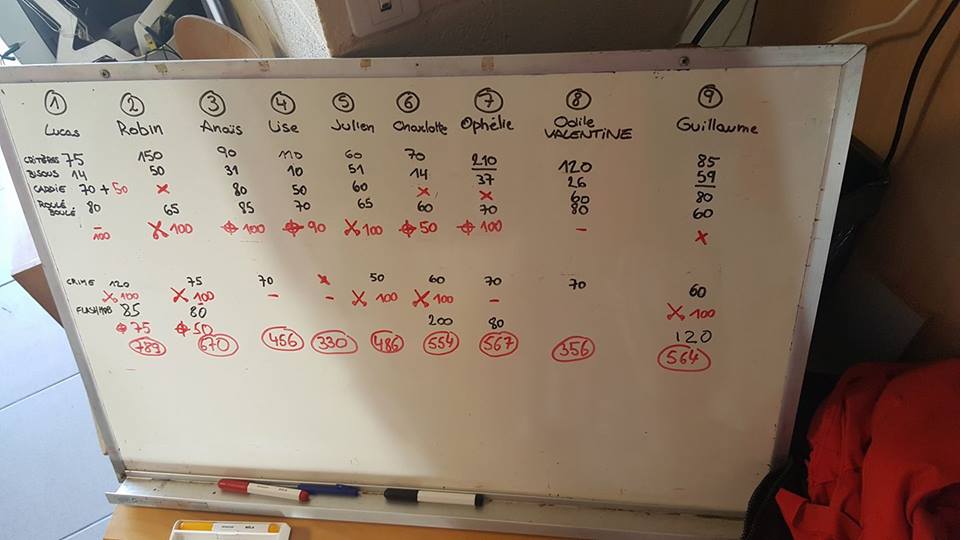 1 2 3 4 5 6 7 8 9
Lucas Robin Anaïs Lise Julien Charlotte Ophélie Odile Guillaume
VALENTINE
CRITÈRES 75 150 90 110 60 70 210 120 85
BISOUS 14 50 31 10 51 14 37 26 59
CADDIE 70 + 50 x 80 50 60 x x 60 80
ROULÉ BOULÉ 80 65 85 70 65 60 70 80 60
- 100 x 100 100 90 x 100 50 100 - x
CRIME 120 75 70 x 50 60 70 70 60
x 100 x 100 - - x 100 x 100 - x 100
FLASHMOB 85 80 200 80 120
75 50
789 670 456 330 486 554 567 356 564